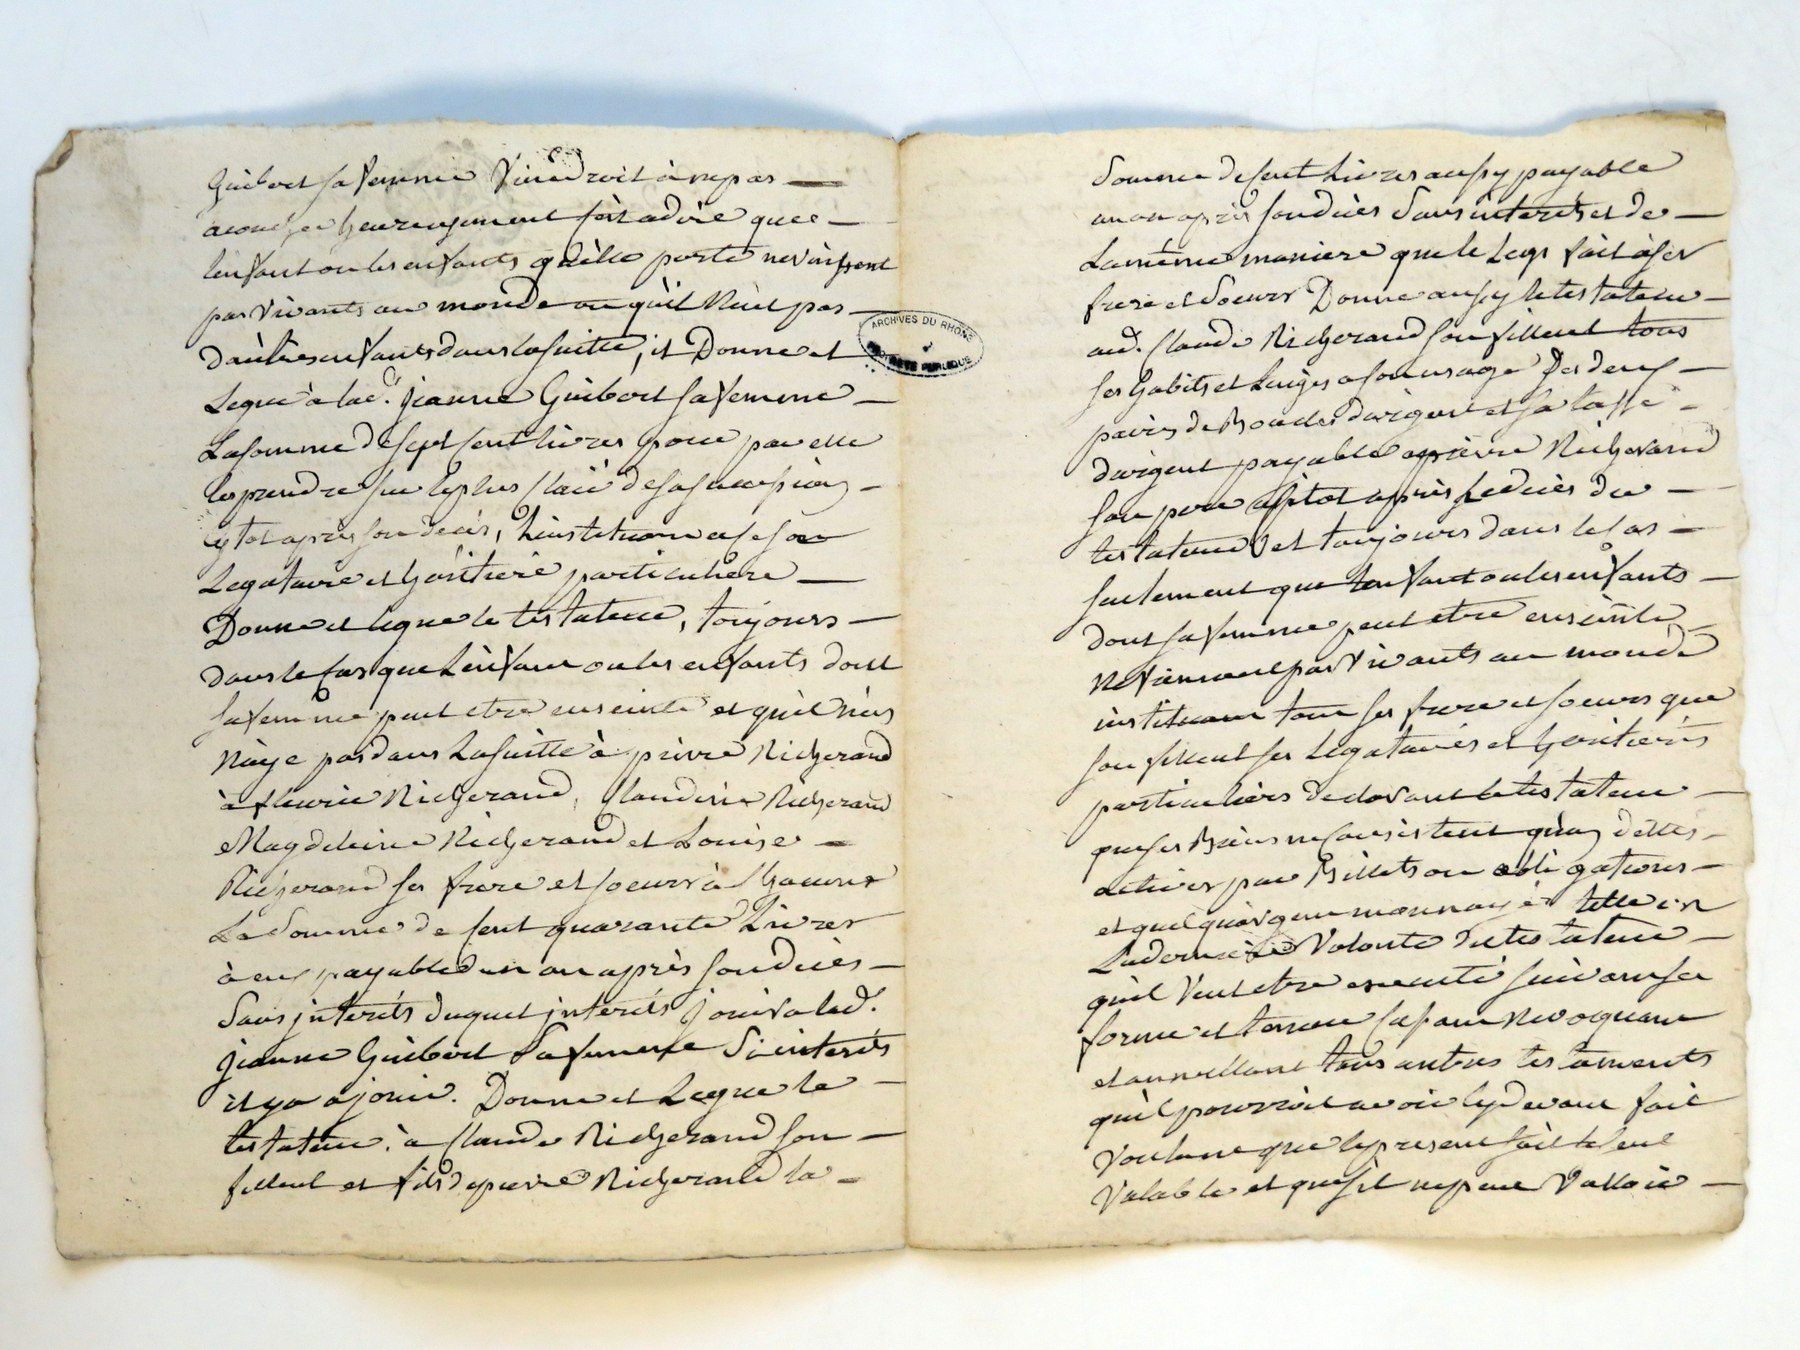 Guibert sa femme viendroit à ne pas
acoucher heureusement sest adire que
lenfant ou les enfants quelle porte ne vinssent
pas vivants au monde ou quil neut pas
dautres enfants dans la suitte, il Donne et
Legue à lad. jeanne Guibert sa femme
La somme de sept sent livres pour par elle
les prendre sur le plus clair de sa succession
sytot après son deces, Linstituant ase
Legataire et héritiere particuliere
Donne et legue le testateur, toujours
dans le cas que Lenfant ou les enfants dont
sa femme peut etre enseinte et quil nen
naye pas dans La suitte à pierre Richerand
à fleurie Richerand, Claudine Richerand
Magdeleine Richerand et Louise
Richerand ses frere et soeurs à Chacune
La Somme de sent quarante Livres
à eux payables un an après son décès
Sans interets duquel interets jouira lad.
jeanne Guibert Sa femme Si interets
il y a a jouir. Donne et Legue le
testateur à Claude Richerand son
filleul et fils de pierre Richerand la
ARCHIVES DU RHONE
Somme de sent Livres aussy payable
un an après son décès Sans interets et de
La même maniere que le Legs fait à ses
frere et Soeurs Donne aussy le testateur
aud. Claude Richerand son filleul tous
ses habits et Linges a son usage Ses deux
paires de Boucles dargent et sa tasse
dargent payable a pierre Richerand
son pere assitot après le décès du
testateur et toujours dans le cas
seulement que Lenfant ou les enfants
dont sa femme peut etre enseinte
ne viennent pas vivants au monde
instituant tant ses frere et soeurs que
son filleul ses Legataires et héritiers
particuliers declarant le testateur
que ses Biens ne consistent quen dettes
actives par Billets ou obligations
et quelquargent monnayé telle est
La derniere Volonté du testateur
quil veut etre executé suivant sa
forme et teneur cassant revoquant
et annullant tous autres testaments
quil pourroit avoir cy devant fait
voulant que le present soit le seul
valable et que sil ne peut valloir